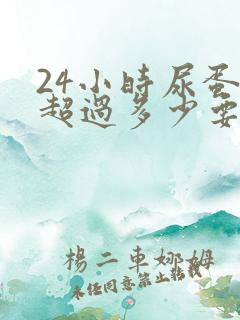 24小時尿蛋
超過多少要
楊二車娜姆
未任同意禁止轉載